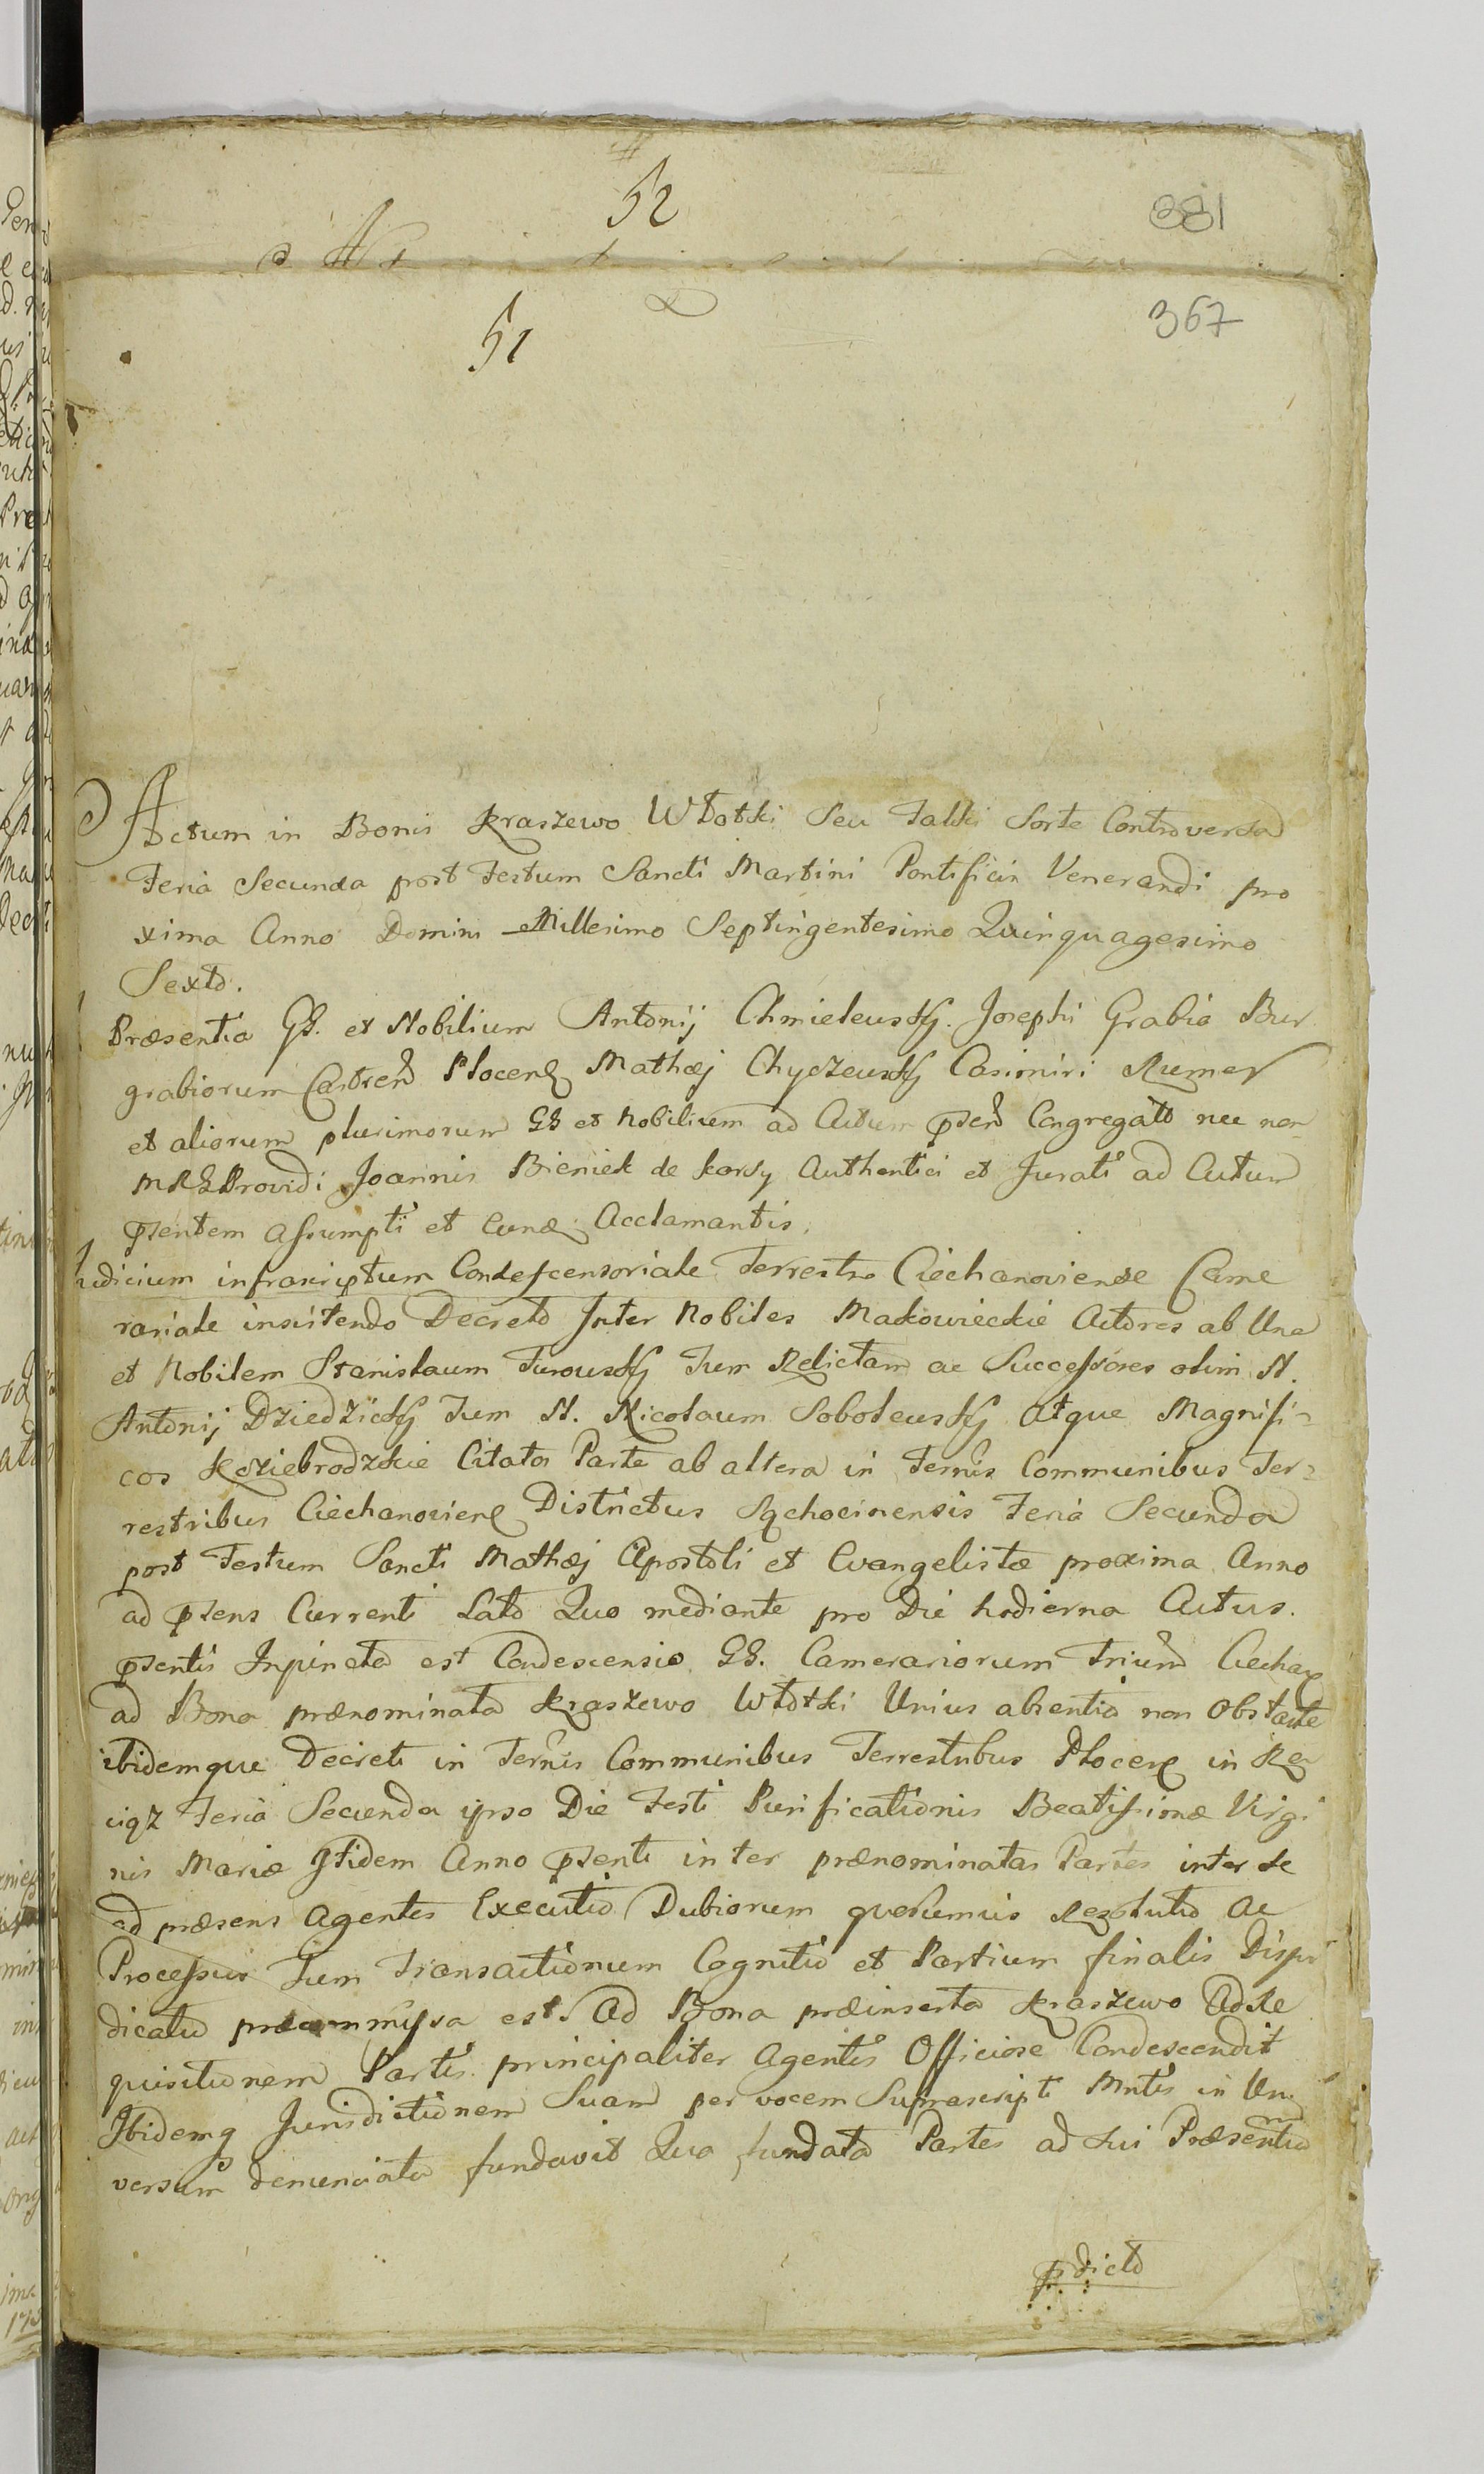 52
381
51
367
Actum in Bonis Kraszewo Wtotki Seu Falki Sorte Controversa
Feria Secunda post Festum Sancti Martini Pontificis Venerandi pro
xima Anno Domini Millesimo Septingentesimo Quinquagesimo
Sexto.
Præsentia GG. et Nobilium Antonij Chmielewskj Josephi Grabia Bur
grabiorum Castren Plocen Mathæj Chyczewskj Casimiri Rumer
et aliorum plurimorum GG et Nobilium ad Actum pñsen Congregato nec non
Providi Joannis Bieniek de Karsy Authentici et Jurati ad Actum
pñsentem assumpti et Acclamantis.
Judicium infrascriptum Condescensoriale Terrestre Ciechanoviense Came
rariale insistendo Decreto Inter Nobiles Makowieckie Actores ab Una
et Nobilem Stanislaum Turowskj Tum Relictam ac Successores olim N.
Antonij Dziedzickj Tum N. Nicolaum Sobolewskj atque Magnifi-
cos Koziebrodzkie Citatos Parte ab altera in Termis Communibus Ter-
restribus Ciechanovien Districtus Sąchocinensis Feria Secunda
post Festum Sancti Mathæj Apostoli et Evangelistæ proxima Anno
ad pñsens Currenti Lato Quo mediante pro Die hodierna Actus.
pñsentis Inpincta est Condescensio GG. Camerariorum Trium Ciechan
ad Bona prænominata Kraszewo Wtotki Unius absentia non Obstante
ibidemque Decreti in Termis Communibus Terrestribus Plocen in Ra
ciąz Feria Secunda ipso Die Festi Purificationis Beatissimæ Virgi
nis Mariæ Itidem Anno pñsenti inter prænominatas Partes inter se
ad præsens Agentes Executio Dubiorum quorumvis Rezolutio ac
Processus Tum Transactionum Cognitio et Partium finalis Disju
dicatio præommissa est. Ad Bona præinserta Kraszewo Ad Re
quisitionem Partis principaliter Agentis Officiose Condescendit
Ibidemq Jurisdictionem Suam per vocem Suprascripti Mntis in Uni
versum denunciata fundavit Qua fundata Partes ad sui Præsentia
pdicto